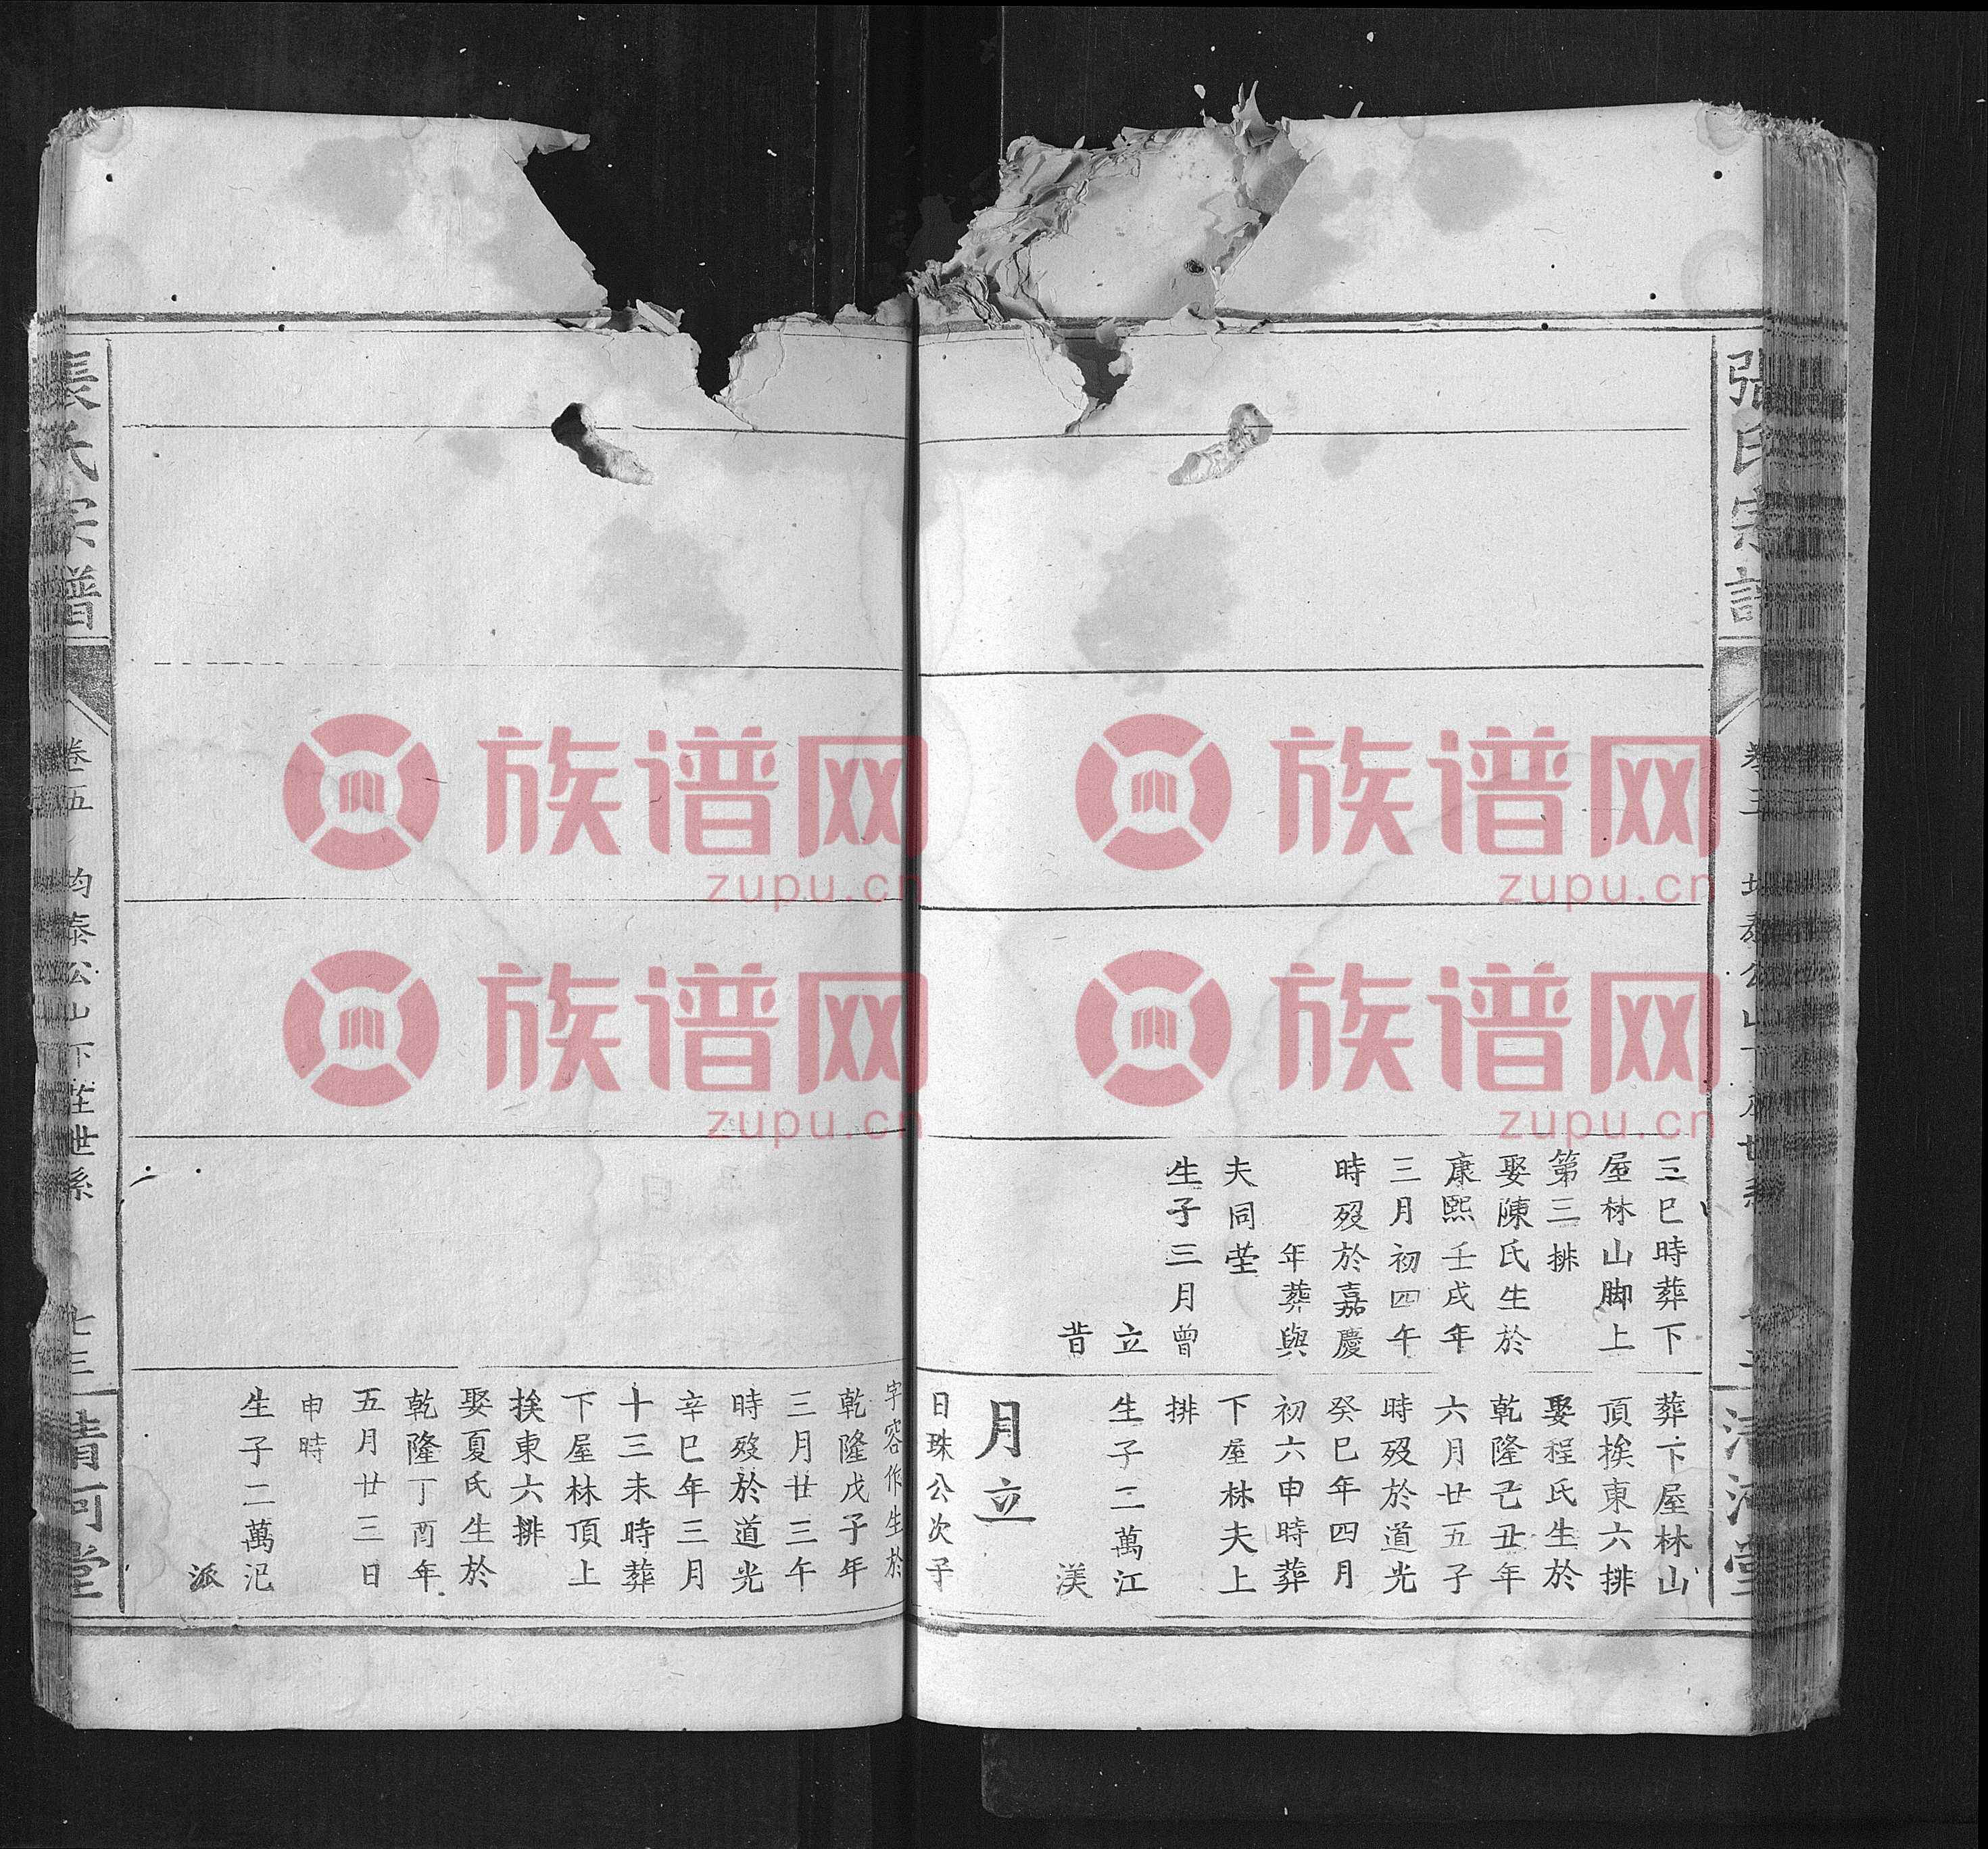 張氏宗譜
三巳時葬下
屋林山脚上
第三排
娶陳氏生於
康熙壬戌年
三月初四午
時歿於嘉慶
年葬與
夫同塋
生子三月曾
立
昔
葬下屋林山
頂挨東六排
娶程氏生於
乾隆己丑年
六月廿五子
時歿於道光
癸巳年四月
初六申時葬
下屋林夫上
排
生子二萬江
渼
月立
日珠公次子
字容作生於
乾隆戊子年
三月廿三午
時歿於道光
辛巳年三月
十三未時葬
下屋林頂上
挨東六排
娶夏氏生於
乾隆丁酉年
五月廿三日
申時
生子二萬汜
派
張氏宗譜
卷五
均泰公山下茔世系
七三
清河堂
族谱网
zupu.cn
族谱网
zupu.cn
族谱网
zupu.cn
族谱网
zupu.cn